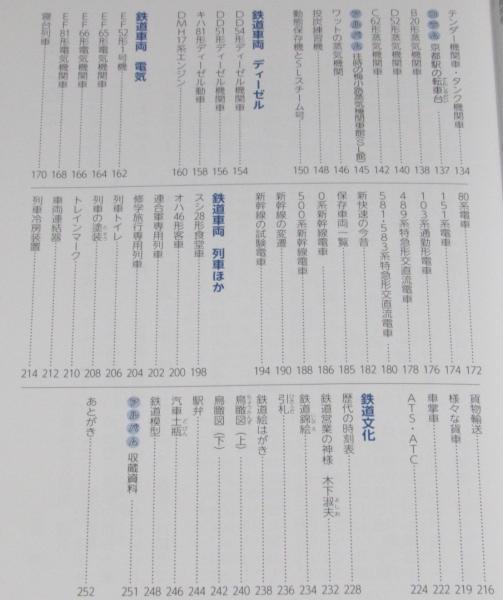 テンダー機関車・タンク機関車 134
京都駅の転車台 137
B20形蒸気機関車 138
D52形蒸気機関車 140
C62形蒸気機関車 142
往時の梅小路蒸気機関車館(SL館) 145
ワットの蒸気機関 146
投炭練習機 148
動態保存機とSLスチーム号 150
鉄道車両 ディーゼル
DD54形ディーゼル機関車 154
DD51形ディーゼル機関車 156
キハ81形ディーゼル動車 158
DMH17系エンジン 160
鉄道車両 電気
EF52形1号機 162
EF65形電気機関車 164
EF66形電気機関車 166
EF81形電気機関車 168
寝台列車 170
80系電車 172
151系電車 174
103系通勤形電車 176
489系特急形交直流電車 178
581・583系特急形交直流電車 180
新快速の今昔 182
保存車両一覧 185
0系新幹線電車 186
500系新幹線電車 188
新幹線の変遷 190
新幹線の試験電車 194
鉄道車両 列車ほか
スシ28形食堂車 198
オハ46形客車 200
連合軍専用列車 202
修学旅行専用列車 204
列車トイレ 206
列車の塗装 とそう 208
トレインマーク 210
車両連結器 212
列車冷房装置 214
貨物輸送 216
様々な貨車 219
車掌車 222
ATS・ATC 224
鉄道文化
歴代の時刻表 228
鉄道営業の神様 木下淑夫 よしお 232
鉄道錦絵 234
引札 236
鉄道絵はがき 238
鳥瞰図(上) 240
鳥瞰図(下) 242
駅弁 244
汽車土瓶 どびん 246
鉄道模型 248
収蔵資料 251
あとがき 252